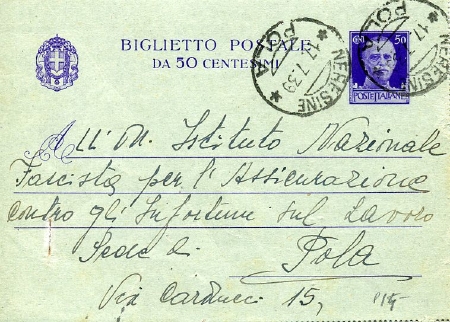 BIGLIETTO POSTALE
DA 50 CENTESIMI
POLA
NERESINE
17.7.39
POLA
NERESINE
17.
CENT 50
POSTE ITALIANE
All'On. Istituto Nazionale
Fascista per l'Assicurazione
contro gl'Infortuni sul Lavoro
Sede di
Pola
Via Carducci 15,